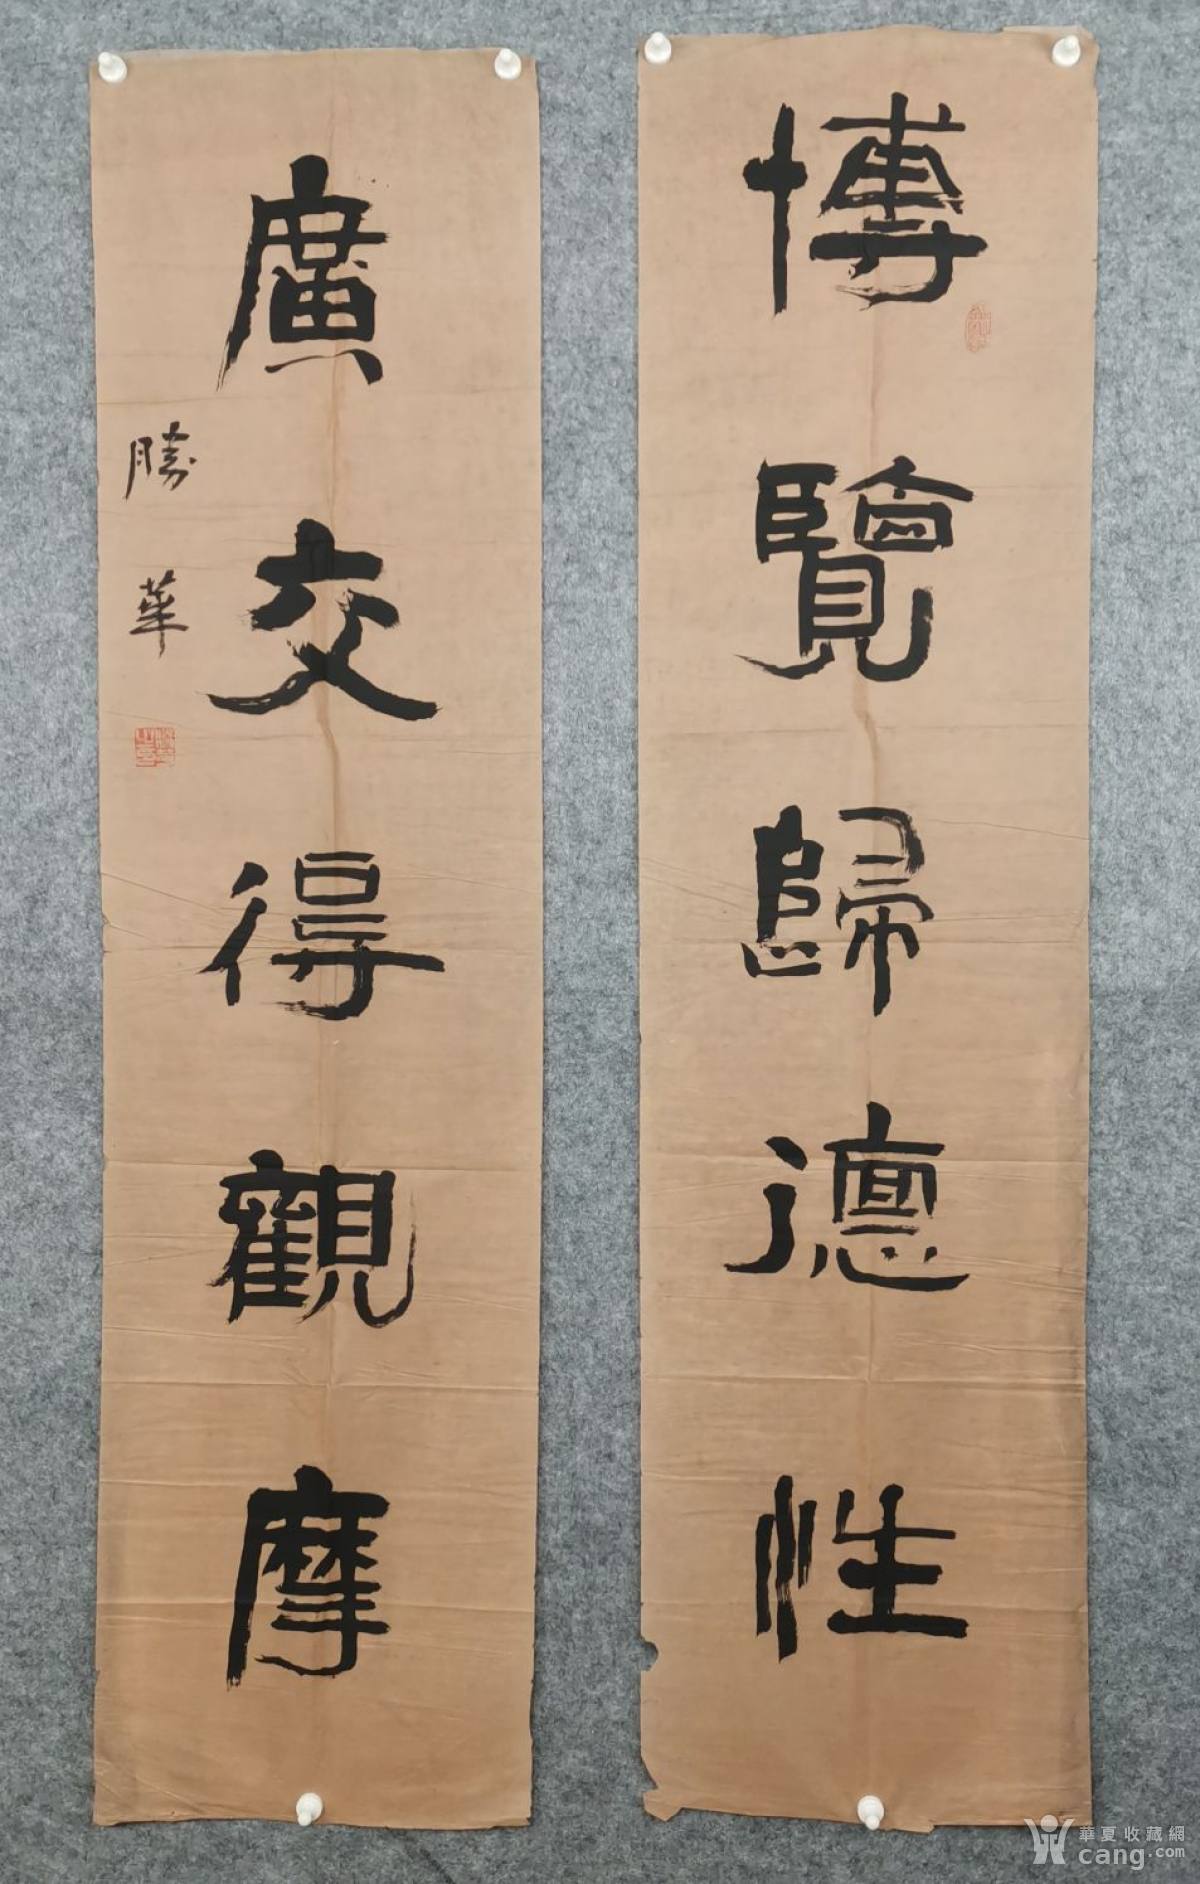 博覽歸德性
廣交得觀摩
勝華
華夏收藏網
cang.com